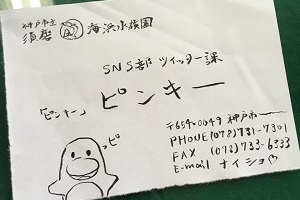 神戸市立
須磨 海浜水族園
SNS部ツイッター課
「ピンキー」ピンキー
ッピ
〒654-0049 神戸市〰
PHONE (078)731-7301
FAX (078)733-6333
E-mail ナイショ♡